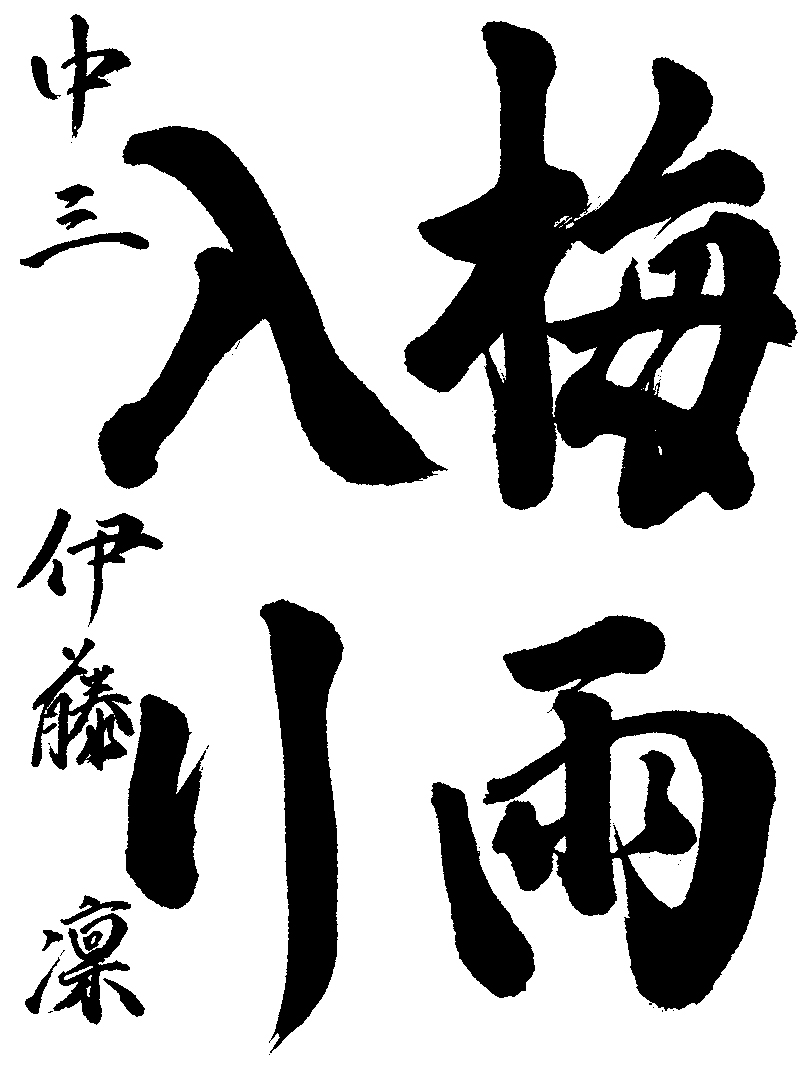 梅雨
入り
中三 伊藤凜